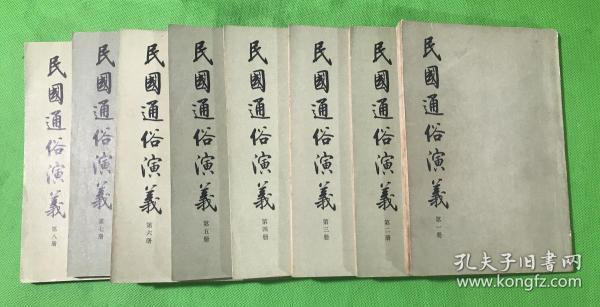 民國通俗演義
第八册
民國通俗演義
第七册
民國通俗演義
第六册
民國通俗演義
第五册
民國通俗演義
第四册
民國通俗演義
第三册
民國通俗演義
第二册
民國通俗演義
第一册
孔夫子旧书网
www.kongfz.com